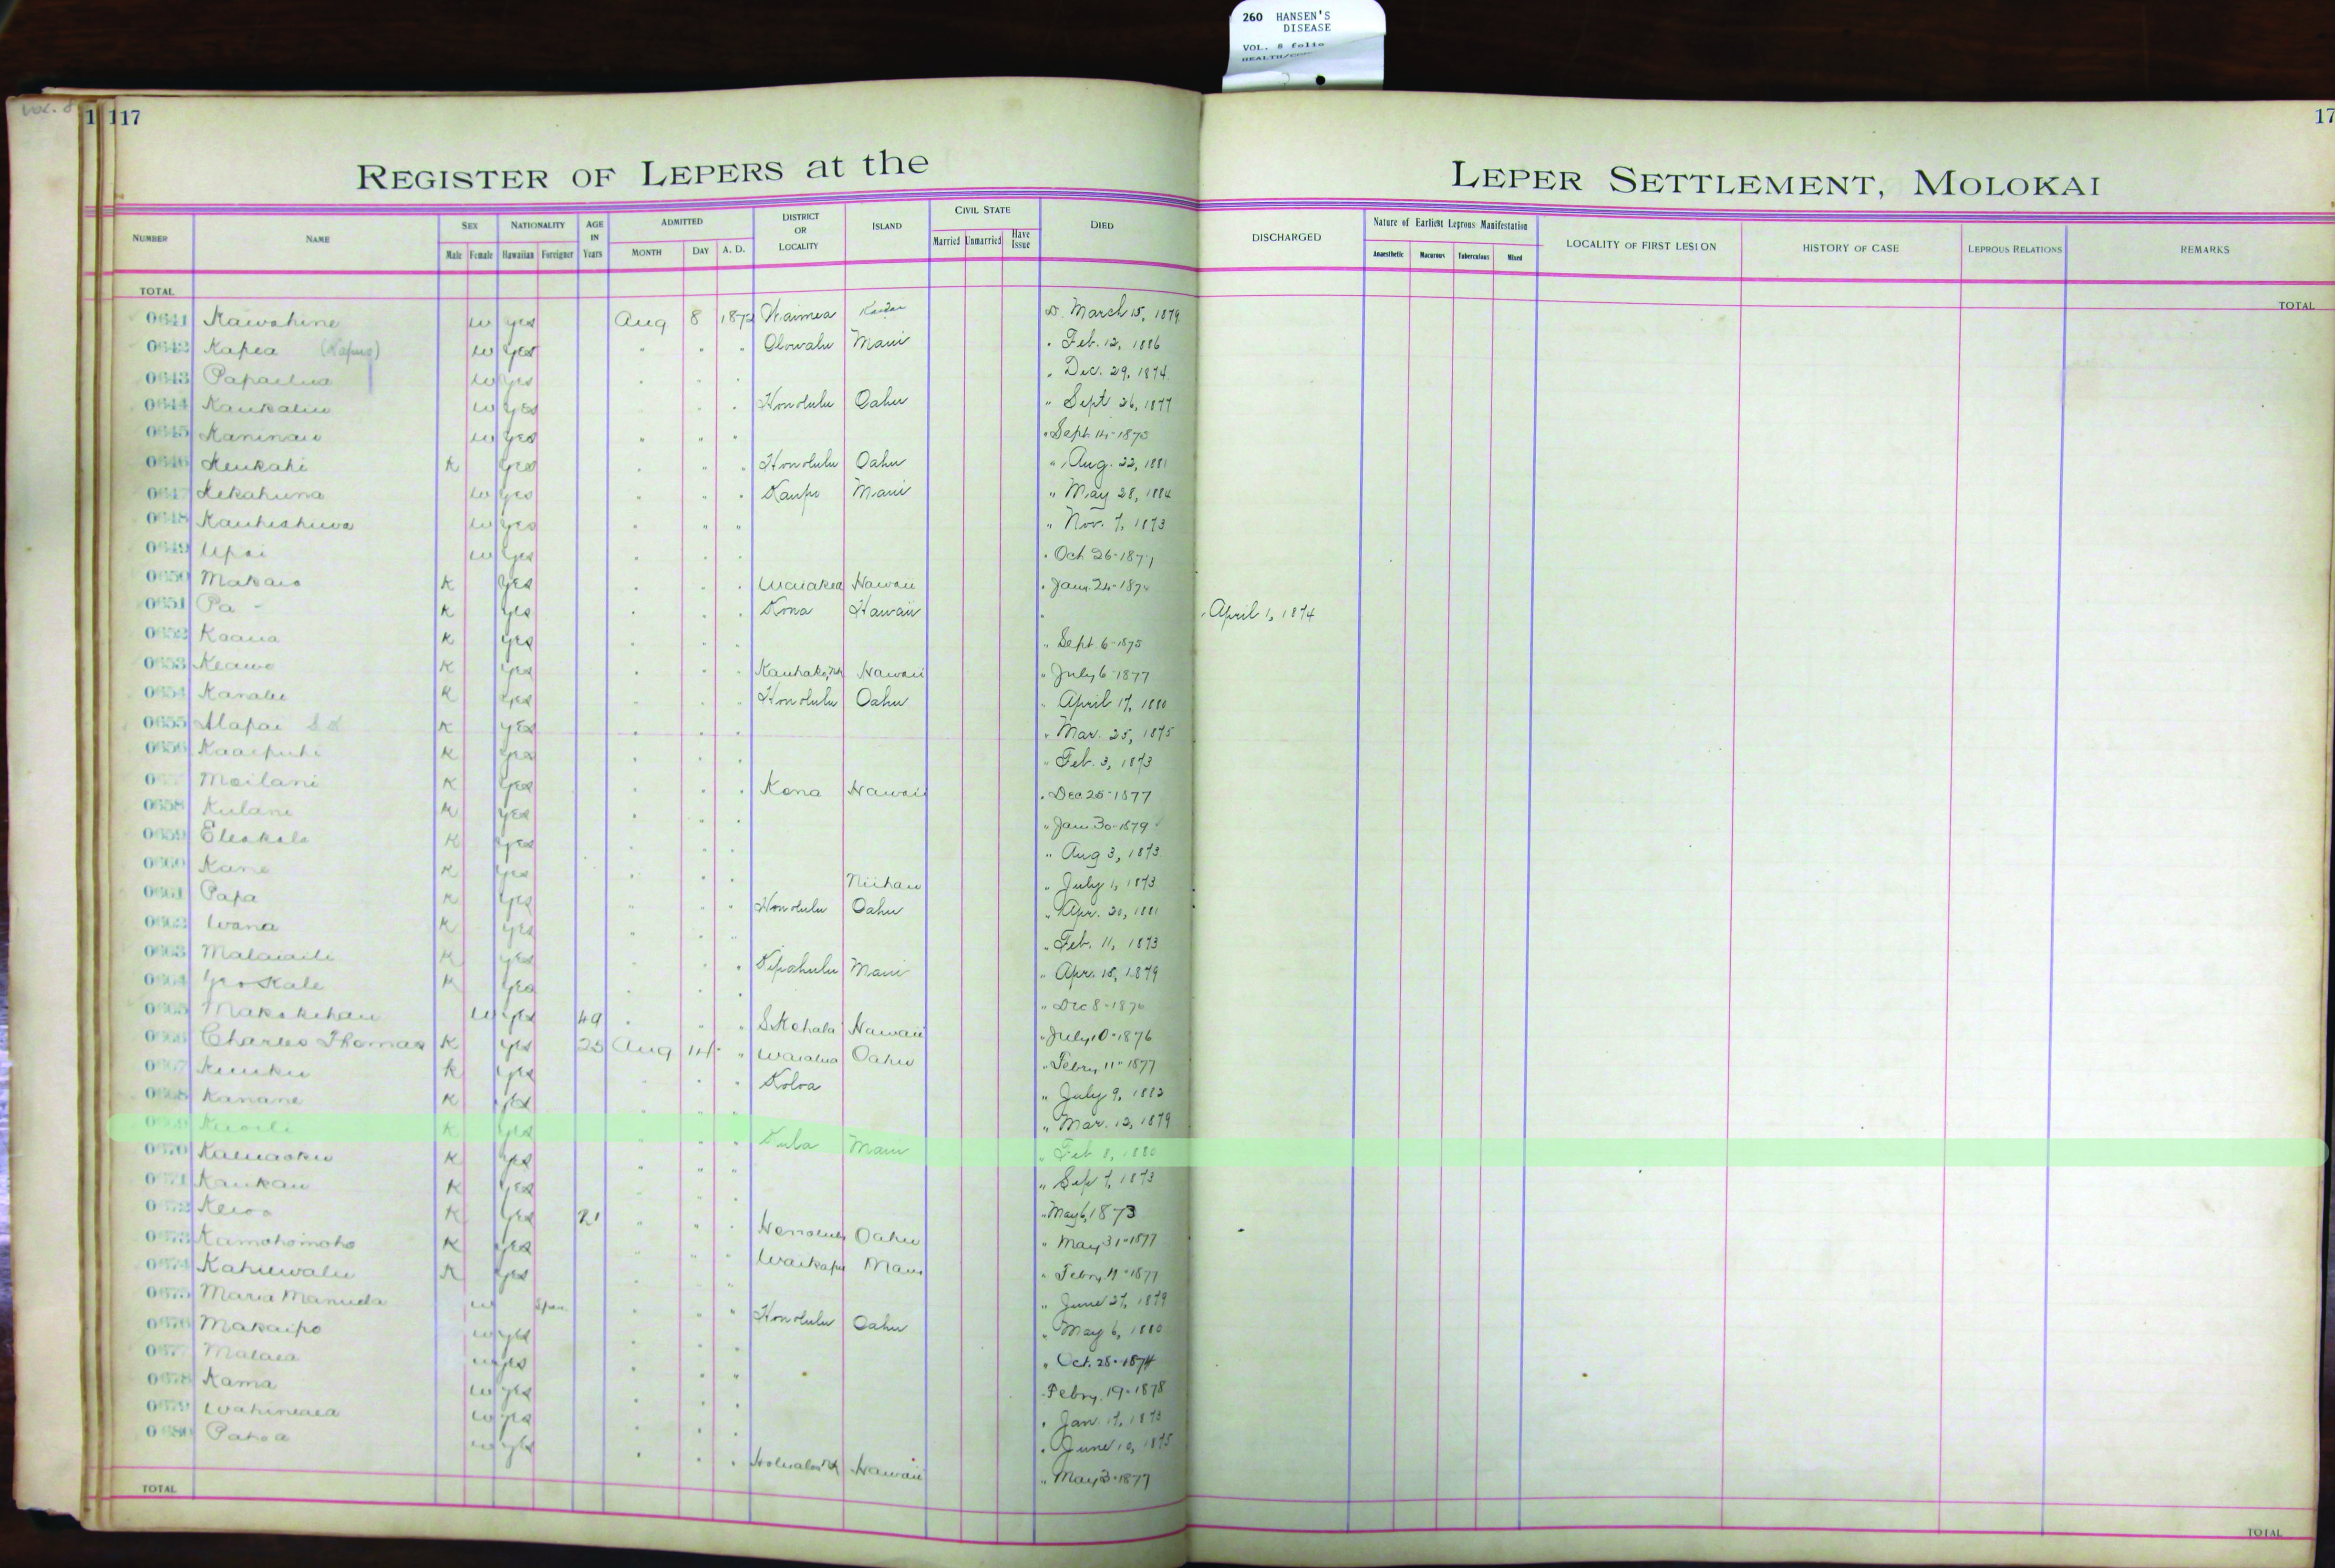 260 HANSEN'S
DISEASE
VOL. 8 folio
Vol. 8
1 117
17
REGISTER OF LEPERS at the LEPER SETTLEMENT, MOLOKAI
NUMBER NAME SEX Male Female NATIONALITY Hawaiian Foreigner AGE IN Years ADMITTED MONTH DAY A. D. DISTRICT OR LOCALITY ISLAND CIVIL STATE Married Unmarried Have Issue DIED DISCHARGED Nature of Earliest Leprous Manifestation Anaesthetic Macurous Tuberculous Mixed LOCALITY OF FIRST LESION HISTORY OF CASE LEPROUS RELATIONS REMARKS
TOTAL TOTAL
0641 Kawahine w yes Aug 8 1872 Waimea Kauai D. March 15, 1879
0642 Kapea w yes " " " Olowalu Maui " Feb. 12, 1886
0643 Papaelua w yes " " " " Dec. 29, 1874
0644 w yes " " Honolulu Oahu " Sept 26, 1877
0645 Kaninau w yes " " " " Sept 14-1875
0646 Keukahi K yes " " " Honolulu Oahu " Aug. 22, 1881
0647 Kekahuna w yes " " " Kaupo Maui " May 28, 1884
0648 w yes " " " " Nov. 7, 1873
0649 Upai w yes " " " " Oct 26-1871
0650 Makaio K yes " " " Waiakea Hawaii " Jany 24-1874
0651 Pa - K yes " " " Kona Hawaii " " April 1, 1874
0652 Koaua K yes " " " " Sept 6-1875
0653 Keawe K yes " " " Hawaii " July 6-1877
0654 Kanalu K yes " " " Honolulu Oahu " April 17, 1880
0655 Alapai K yes " " " " Mar. 25, 1875
0656 Kaaipuhi K yes " " " " Feb. 3, 1873
Moilani K yes " " " Kona Hawaii " Dec 25-1877
0658 Kulani K yes " " " " Jan. 30-1879
0659 Eleakala K yes " " " " Aug 3, 1873
0660 Kane K yes " " " Niihau " July 1, 1873
0661 Papa K yes " " " Honolulu Oahu " Apr. 20, 1881
0662 Wana K yes " " " " Feb. 11, 1873
0663 K yes " " " Kipahulu Maui " Apr. 15, 1879
0664 K yes " " " " Dec 8-1876
0665 Makakehau w yes 49 " " " S. Kohala Hawaii " July 10-1876
0666 Charles Thomas K yes 25 Aug 14 " Waialua Oahu " Febry 11-1877
0667 K yes " " " Koloa " July 9, 1882
0668 Kanane K yes " " " " Mar. 12, 1879
0669 K yes " " " Kula Maui " Feb 8, 1880
0670 K yes " " " " Sep 7, 1873
0671 Kaukau K yes " " " " May 6, 1873
0672 K yes 21 " " " Honolulu Oahu " May 31-1877
0673 Kamohomoho K yes " " " Waikapu Maui " Febry 11-1877
0674 Kahuwalu K yes " " " " June 27, 1879
0675 Maria Manuela w Span. " " " Honolulu Oahu " May 6, 1880
0676 Makaipo w yes " " " " Oct. 28-1874
0677 Malaea w yes " " " " Febry. 19-1878
0678 Kama w yes " " " " Jan. 17, 1873
0679 Wahineaea w yes " " " " June 10, 1875
0680 Pahoa w yes " " " Hawaii " May 3-1877
TOTAL TOTAL